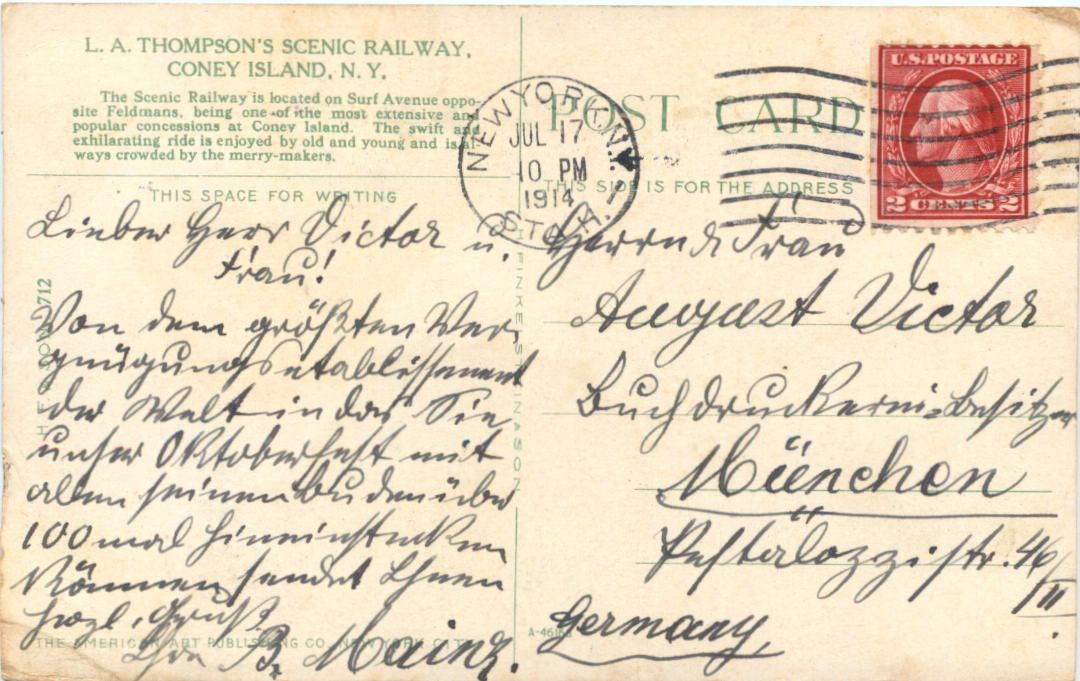 L. A. THOMPSON'S SCENIC RAILWAY,
CONEY ISLAND, N. Y.
The Scenic Railway is located on Surf Avenue oppo-
site Feldmans, being one of the most extensive and
popular concessions at Coney Island. The swift and
exhilarating ride is enjoyed by old and young and is al-
ways crowded by the merry-makers.
THIS SPACE FOR WRITING
Lieber Herr Victor u.
Frau!
Von dem größten Ver-
gnügungsetablissement
der Welt in das Sie
unser Oktoberfest mit
allen seinen Buden über
100 mal hineinstecken
können sendet Ihnen
herzl. Gruß
Ihr B. Mainz.
THE AMERICAN ART PUBLISHING CO., NEW YORK CITY
NEW YORK, N.Y.
JUL 17
10 PM
1914
STA.
POST CARD
THIS SIDE IS FOR THE ADDRESS
U.S. POSTAGE
2 CENTS 2
Herrn & Frau
August Victor
Buchdruckerei-Besitzer
München
Pestalozzistr. 46/II
Germany,